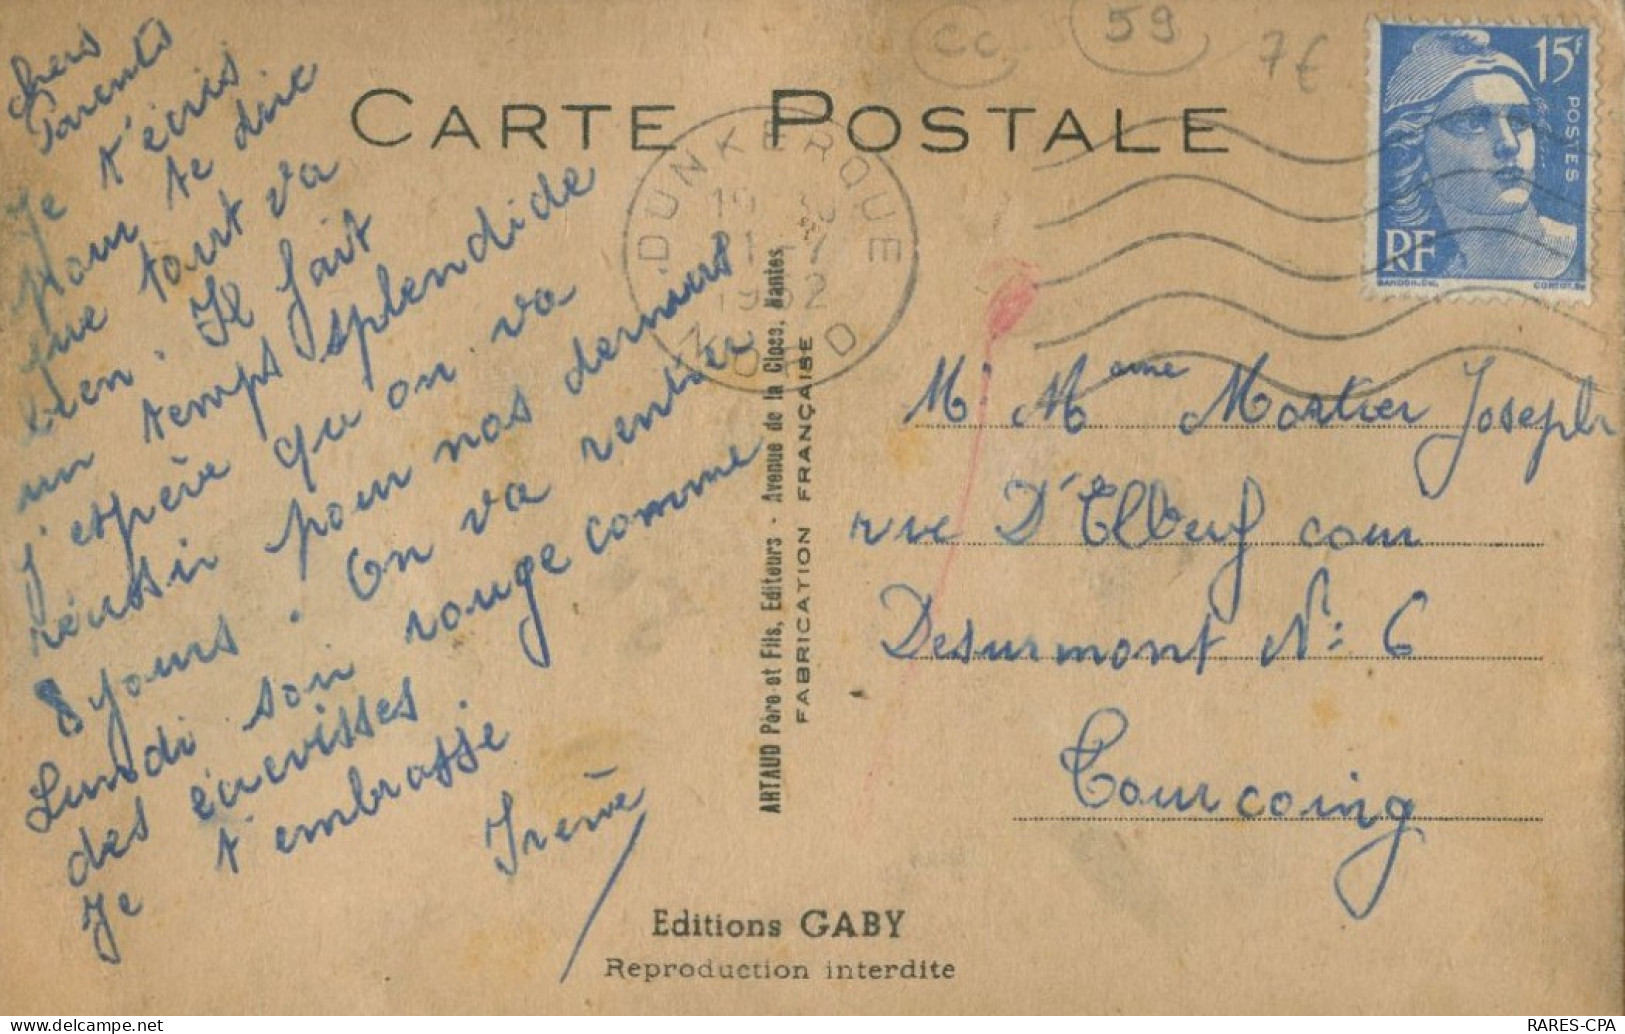 Chers
Parents
Je t'écris
pour te dire
que tout va
bien. Il fait
un temps splendide
j'espère qu on va
réussir pour nos derniers
8 jours. On va rentrer
Lundi soir rouge comme
des écrevisses.
Je t'embrasse
Irène
CARTE POSTALE
CC 59 7€
DUNKERQUE
21 - 7
1952
NORD
15F
POSTES
RF
GANDON.DEL.
ARTAUD Père et Fils, Editeurs - Avenue de la Close, Nantes
FABRICATION FRANÇAISE
Mr Mame Mortier Joseph
rue D'Elbeuf cour
Desurmont N°: 6
Tourcoing
Editions GABY
Reproduction interdite
RARES-CPA